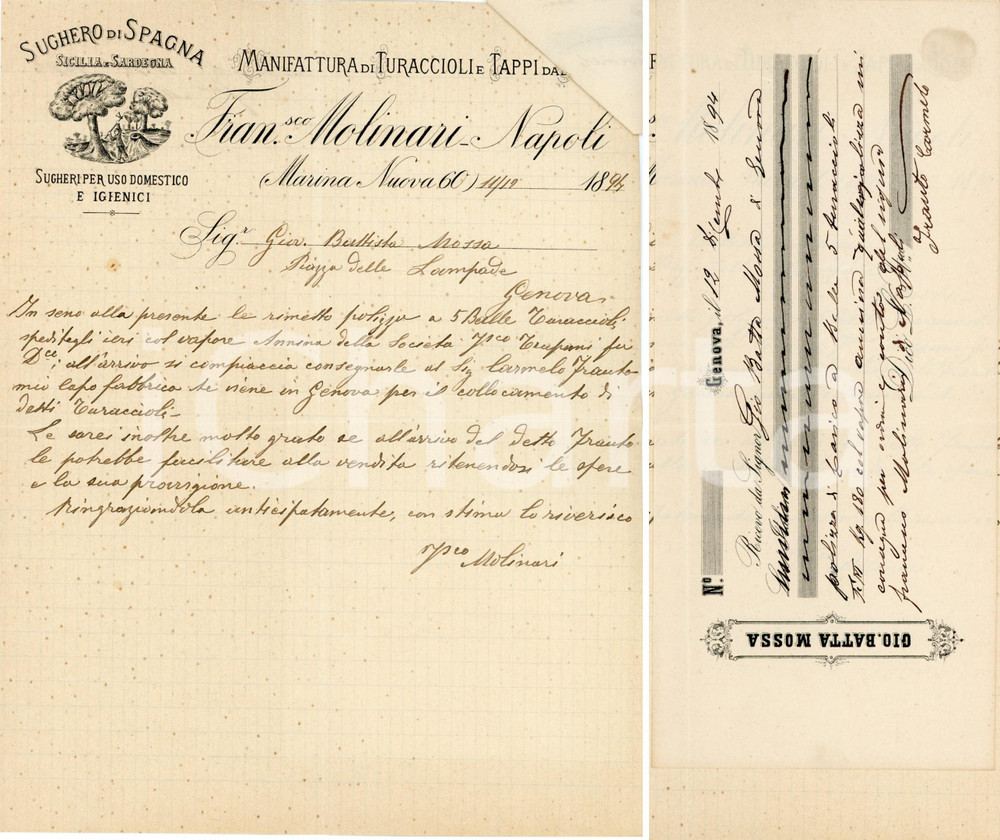 SUGHERO DI SPAGNA
SICILIA E SARDEGNA
SUGHERI PER USO DOMESTICO
E IGIENICI
MANIFATTURA DI TURACCIOLI E TAPPI DA
Fran.sco Molinari - Napoli
(Marina Nuova 60) 11/12 1894
Sig.r Giov. Battista Mossa
Piazza delle Lampade
Genova
In seno alla presente le rimetto polizza a 5 Balle Turaccioli
speditagli ieri col vapore Annina della Società Trapani fu
all'arrivo si compiaccia consegnarle al Sig Carmelo Trauto
mio Capo fabbrica che viene in Genova per il collocamento di
detti Turaccioli -
Le sarei inoltre molto grato se all'arrivo del detto Trauto
le potrebbe facilitare alla vendita ritenendosi le spese
e la sua provvigione.
Ringraziandola anticipatamente, con stima lo riverisco
Molinari
iCharta
GIO. BATTA MOSSA
N.o Genova, il 12 1894
Ricevo dal Signor Gio Batta Mossa di Genova
polizza di carico a Balle 5 turaccioli
col vapore annina
consegna per ordine e conto del signor
francesco Molinari di Napoli
Trauto Carmelo